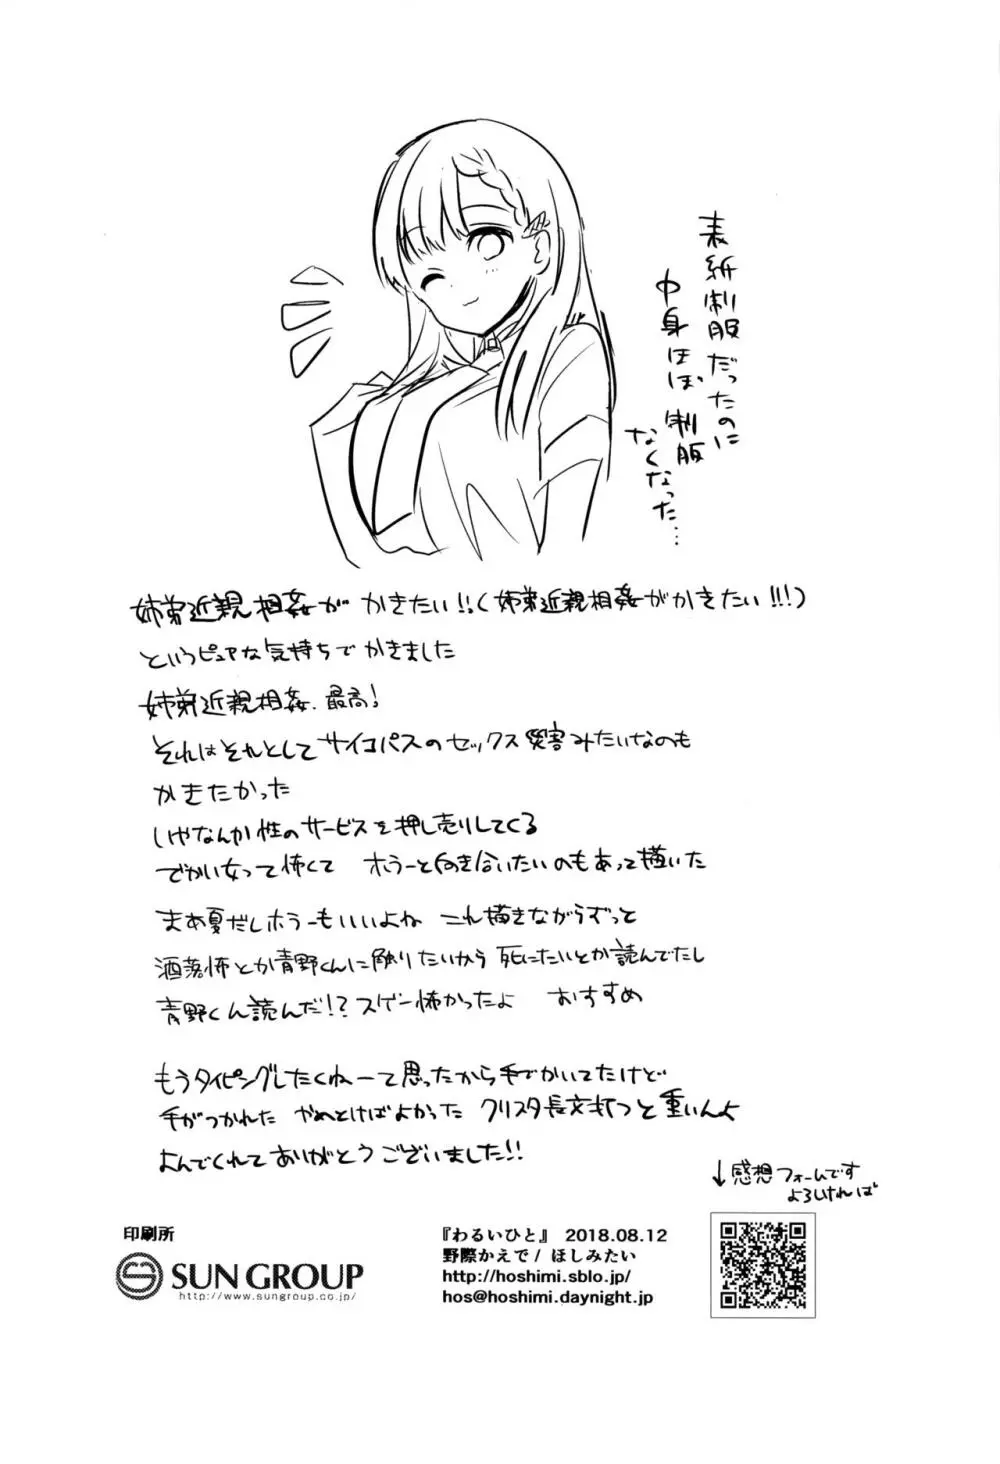 表紙制服だったのに
中身ほぼ制服
なくなった…
姉弟近親相姦が かきたい!!(姉弟近親相姦がかきたい!!!)
というピュアな気持ちで かきました
姉弟近親相姦、最高!
それはそれとして サイコパスの セックス災害みたいなのも
かきたかった
いやなんか性のサービスを押し売りしてくる
でかい女って怖くて ホラーと向き合いたいのもあって描いた
まあ夏だしホラーもいいよね これ描きながらずっと
洒落怖とか青野くんに触りたいから死にたいとか読んでたし
青野くん読んだ!?スゲー怖かったよ おすすめ
もうタイピングしたくねーって思ったから手でかいてたけど
手がつかれた やめとけばよかった クリスタ長文打つと重いんよ
よんでくれて ありがとう ございました!!
↓感想フォームです
よろしければ
印刷所
SUN GROUP
http://www.sungroup.co.jp/
『わるいひと』 2018.08.12
野際かえで/ ほしみたい
http://hoshimi.sblo.jp/
hos@hoshimi.daynight.jp